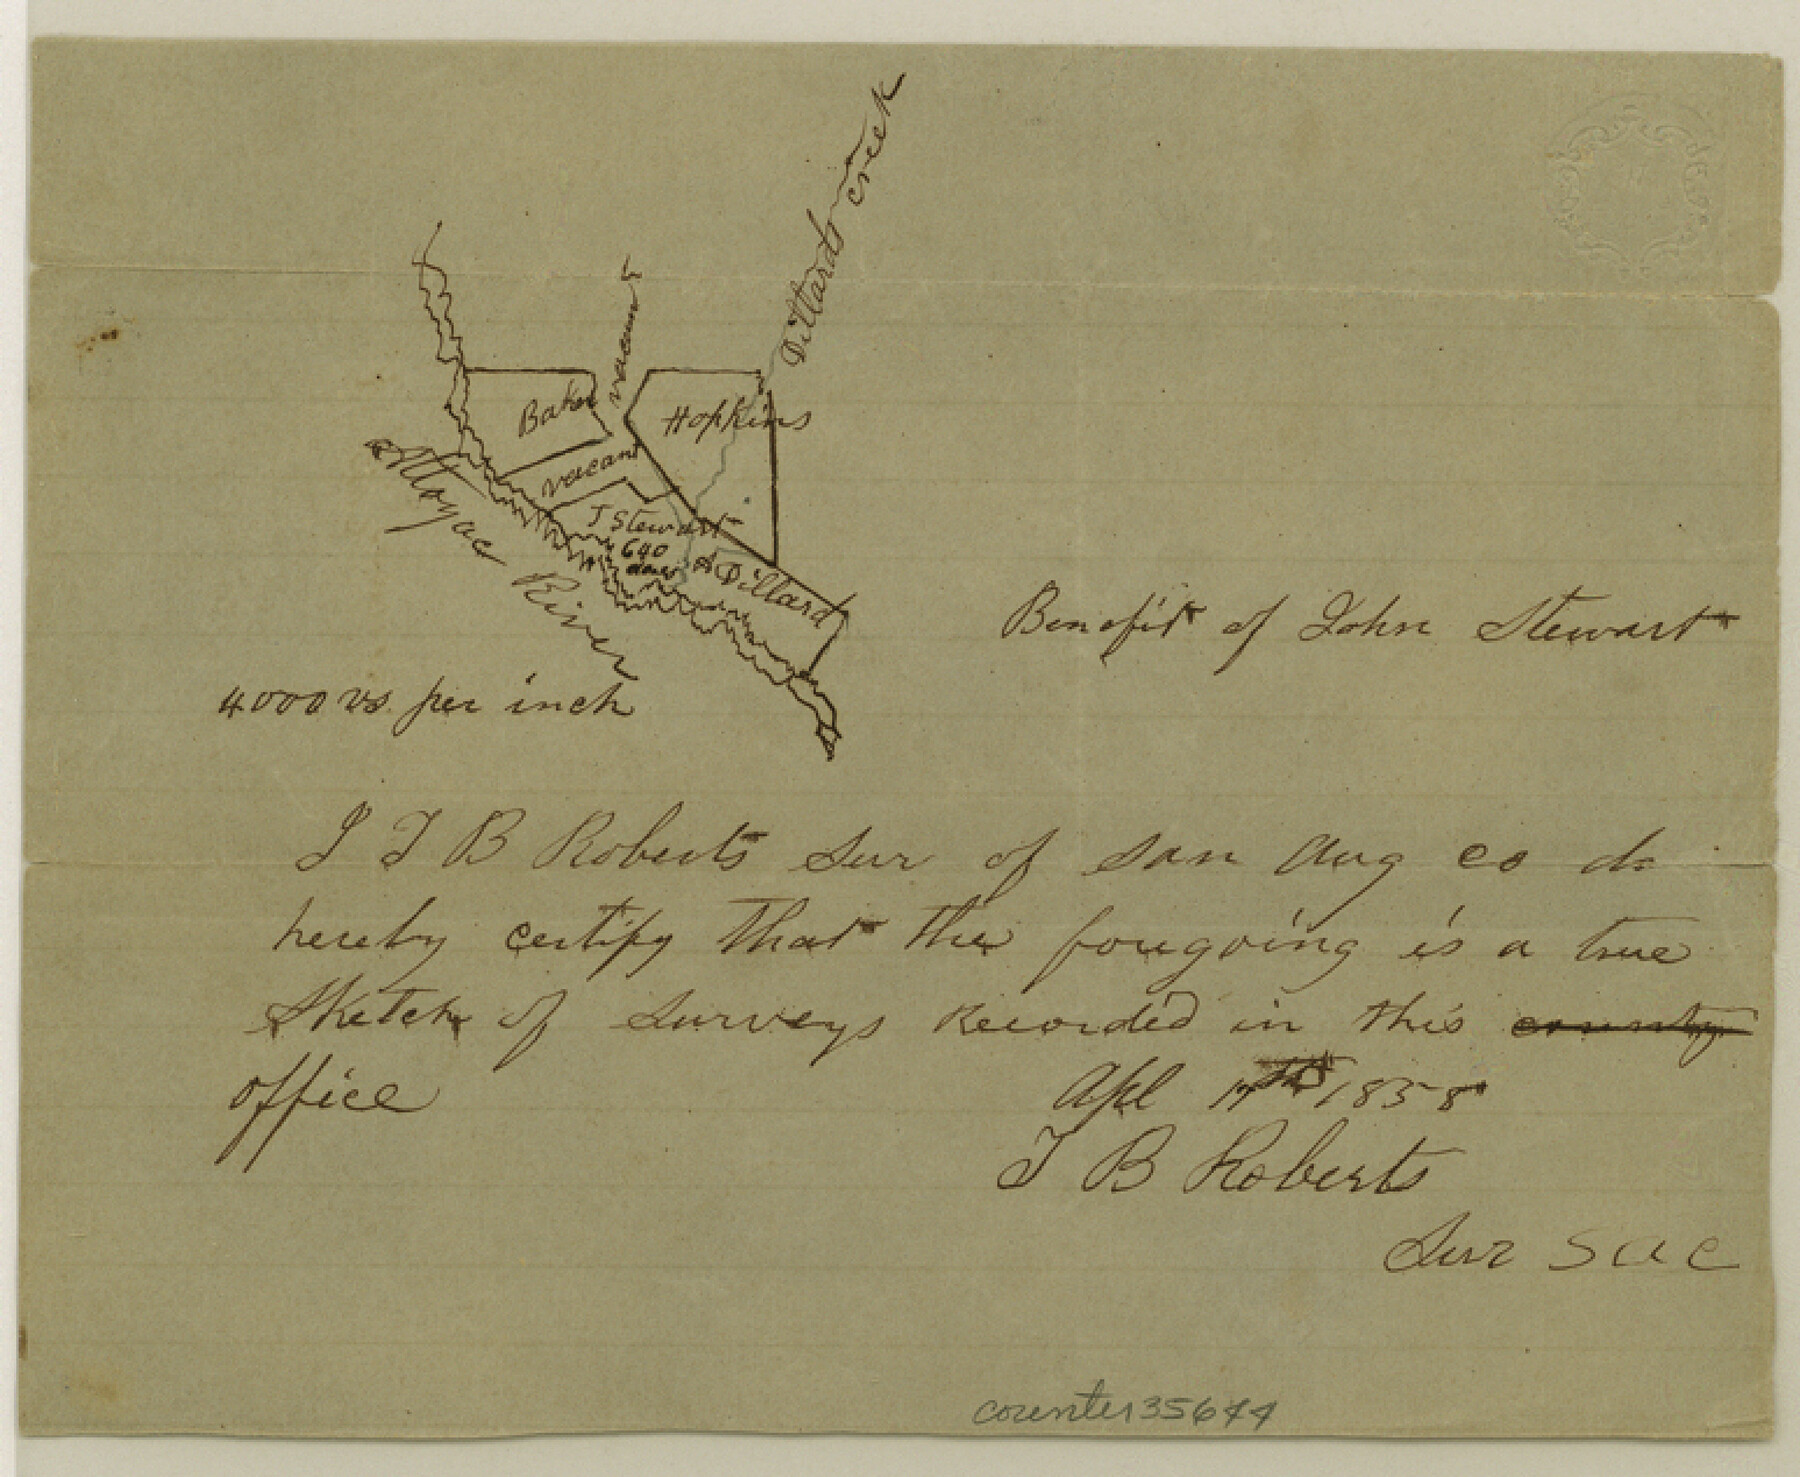 Dillards Creek
vacant
Baker
Hopkins
vacant
J Stewart
640
acres
A Dillard
Attoyac River
Benefit of John Stewart
4000 vs per inch
I T B Roberts Sur of San Aug co do
hereby certify that the foregoing is a true
Sketch of Surveys Recorded in this county
office
Apl 17th 1858
T B Roberts
Sur S A C
counter 35644